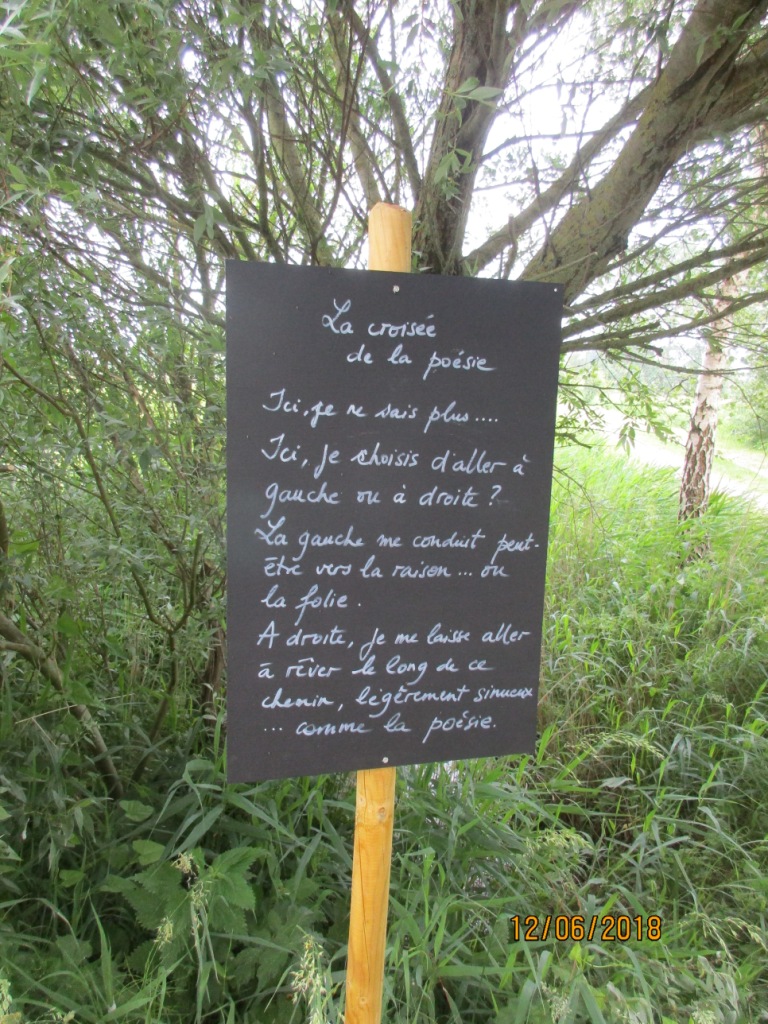 La croisée
de la poésie
Ici, je ne sais plus....
Ici, je choisis d'aller à
gauche ou à droite ?
La gauche me conduit peut-
être vers la raison ... ou
la folie.
A droite, je me laisse aller
à rêver le long de ce
chemin, légèrement sinueux
... comme la poésie.
12/06/2018